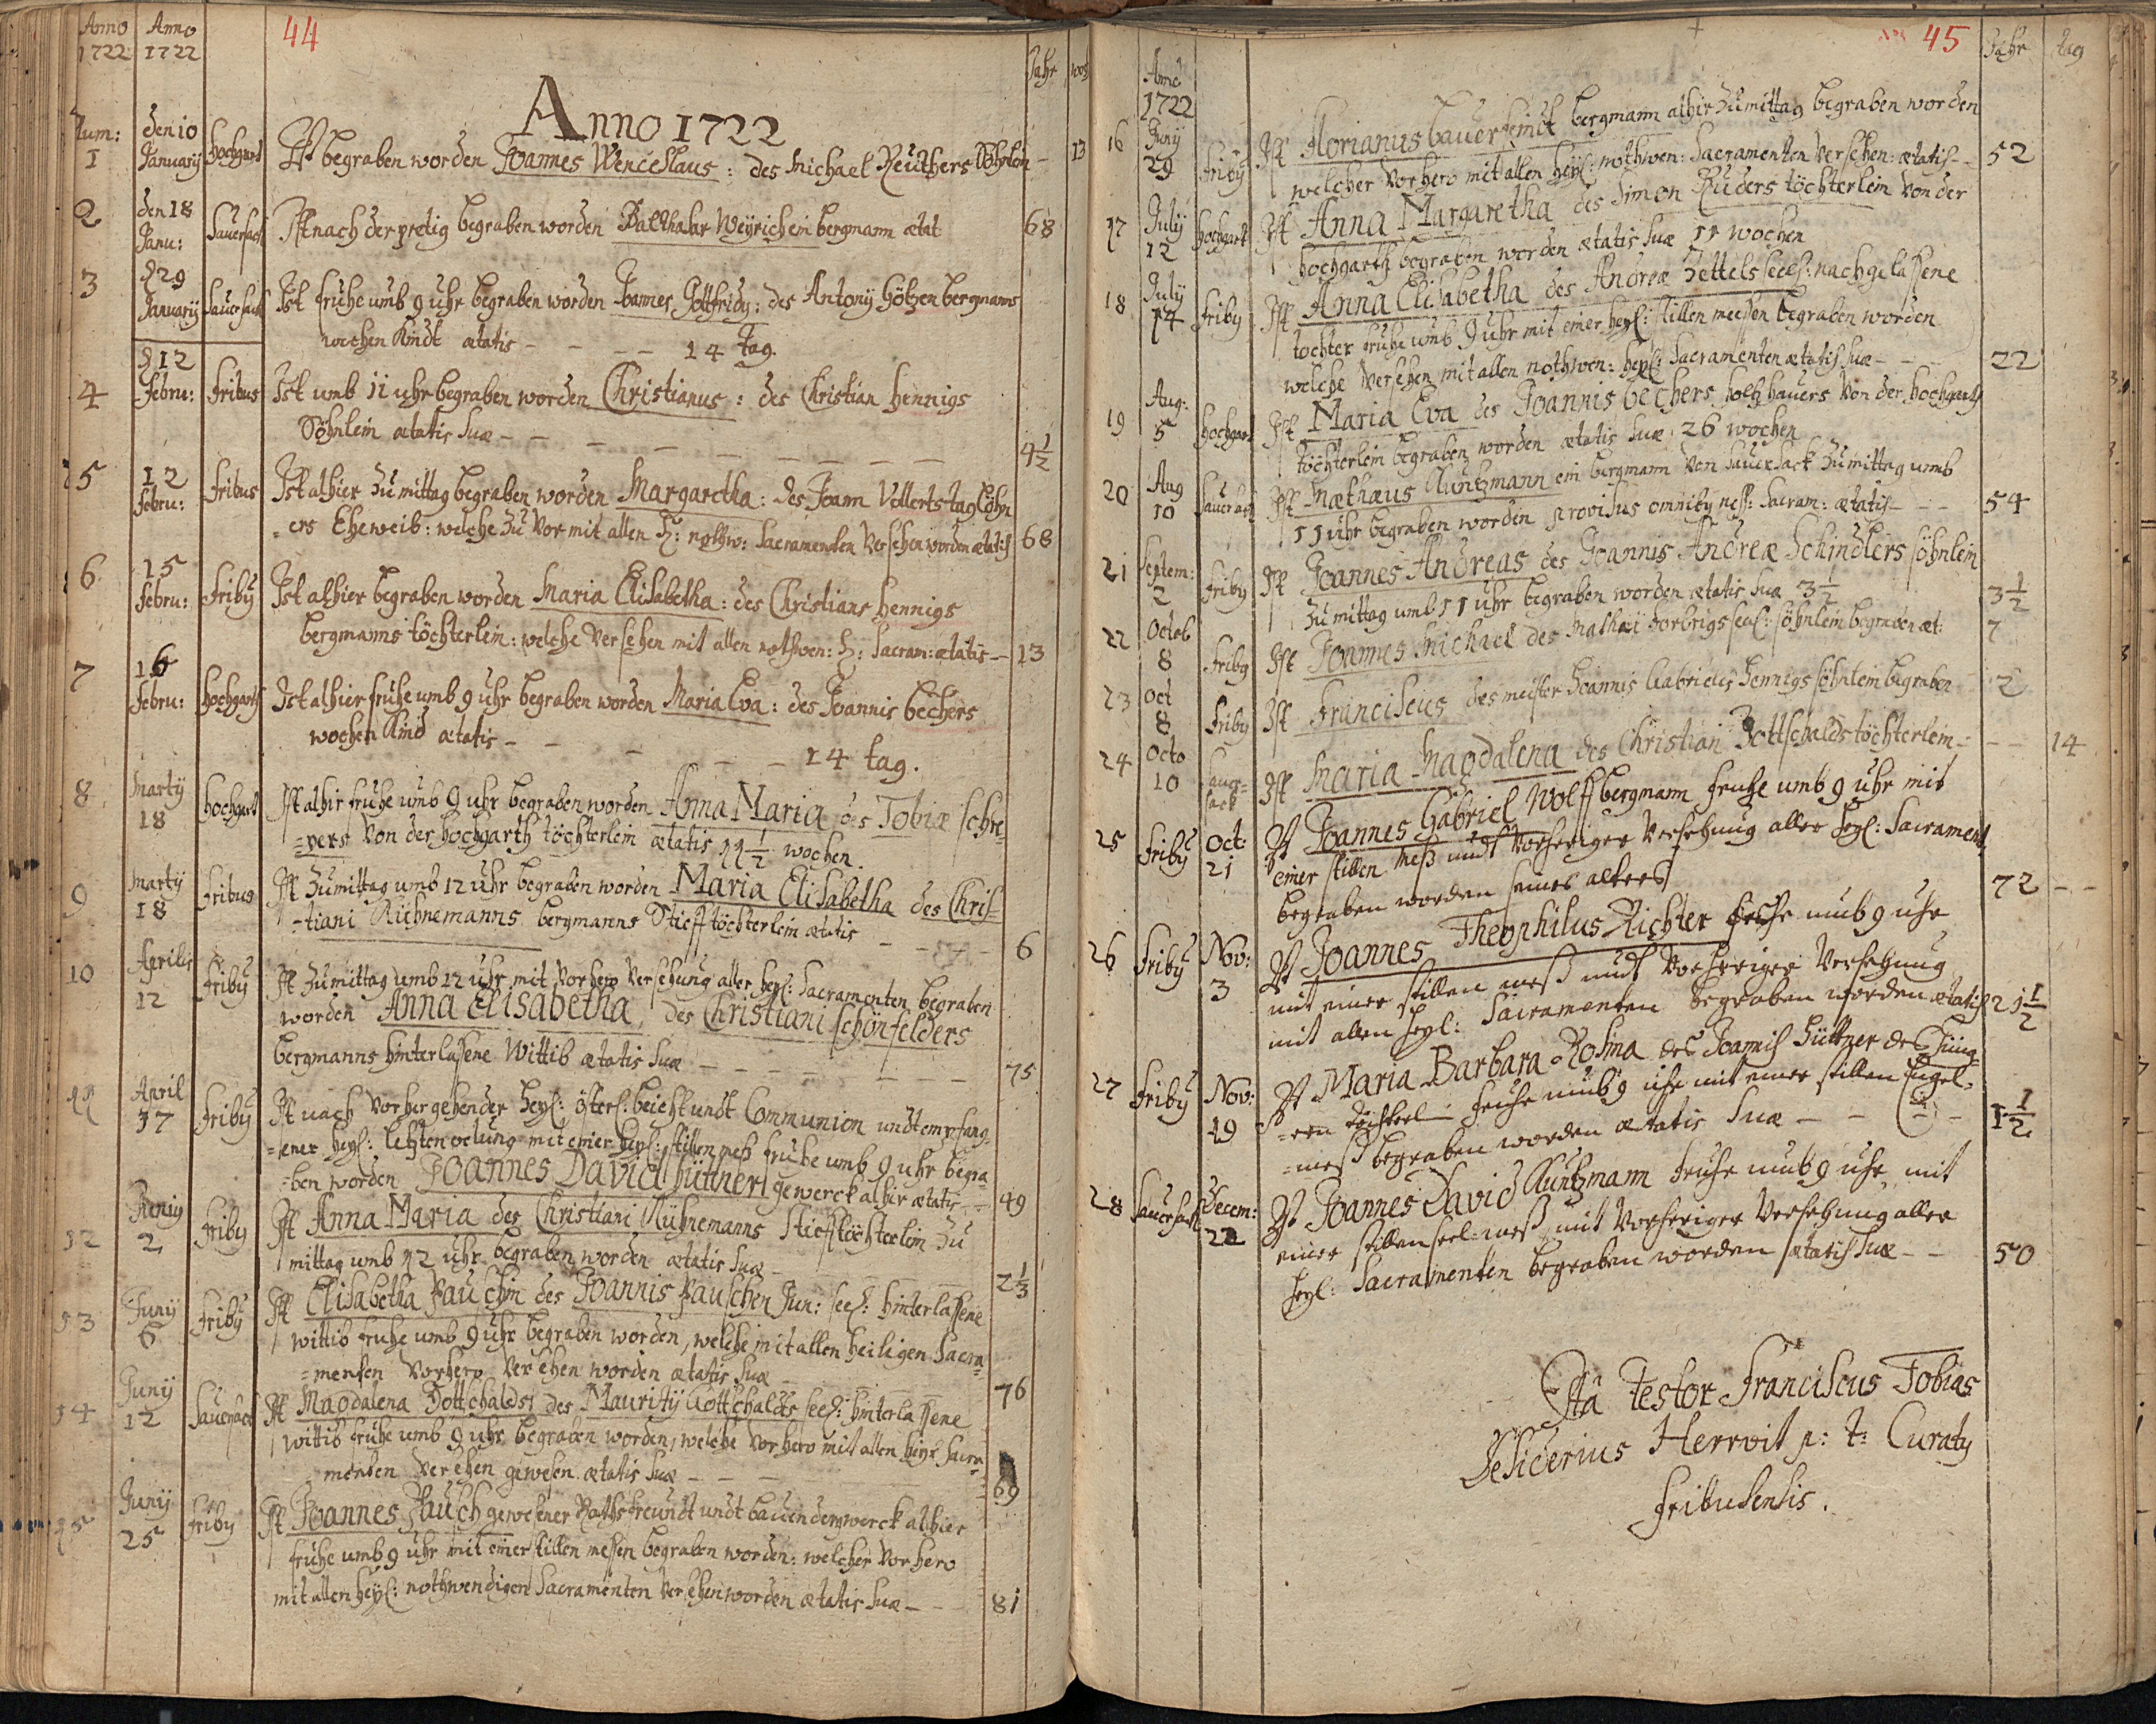 Anno 1722
Anno 1722
44
Jahr
woch
Anno 1722
Num:
1 den 10 Januarij Hochgart Ist begraben worden Joannes Wenceslaus: des Michael Reuthers Söhnlein – 13
2 den 18 Janu: Sauersack Ist nach der pretig begraben worden Balthasar Weyrich ein bergmann ætat 68
3 d 29 Januarij Sauersack Ist fruhe umb 9 uhr begraben worden Joannes Gottfridy: des Antonij Götzen bergmans
wochen Kindt ætatis – – – – 14 tag.
4 d 12 Febru: Fribus Ist umb 11 uhr begraben worden Christianus: des Christian Hennigs
Söhnlein ætatis suæ – – – – – – – – 4½
5 12 Febru: Fribus Ist alhier zu mittag begraben worden Margaretha: des Joann Vollerts taglöhn
=ers Eheweib: welche zu vor mit allen H: nothw: Sacramenten versehen worden ætatis 68
6 15 Febru: Friby Ist alhier begraben worden Maria Elisabetha: des Christians Hennigs
bergmanns töchterlein: welche versehen mit allen nothwen: H: Sacram: ætatis – 13
7 16 Febru: Hochgarth Ist alhier fruhe umb 9 uhr begraben worden Maria Eva: des Joannis bechers
wochen Kind ætatis – – – – – 14 tag.
8 Marty 18 Hochgart Ist alhir fruhe umb 9 uhr begraben worden Anna Maria des Tobiæ schre
=yers von der Hochgarth töchterlein ætatis 11½ wochen.
9 Marty 18 Fribus Ist zu mittag umb 12 uhr begraben worden Maria Elisabetha des Chris=
=tiani Kühnemanns bergmanns Stiefftöchterlein ætatis – – – 6
10 Aprilis 12 Friby Ist zu mittag umb 12 uhr mit vorhero versehung aller heyl: Sacramenten begraben
worden Anna Elisabetha, des Christiani schönfelders
bergmanns hinterlassene Wittib ætatis suæ – – – – – – 75
11 April 17 Friby Ist nach vorhergehender heyl: österl: beicht undt Communion undt empfang=
=ener heyl: letzten oelung mit einer heyl: stillen meß fruhe umb 9 uhr begra=
=ben worden Joannes David Hüttner gewerck alhir ætatis – 49
12 Juniy 2 Friby Ist Anna Maria des Christiani Kühnemanns Stiefftöchterlein zu
mittag umb 12 uhr begraben worden ætatis suæ – – – – 2⅓
13 Juny 6 Friby Ist Elisabetha Pauschin des Joannis Pauschen Jun: seel: hinterlassene
wittib fruhe umb 9 uhr begraben worden, welche mit allen heiligen Sacra=
=menten vorhero versehen worden ætatis suæ – – – 76
14 Juny 12 Sauersack Ist Magdalena Gottschaldst des Maurity Gottschaldts seel: hinterlassene
wittib fruhe umb 9 uhr begraben worden, welche vorhero mit allen heyl: Sacra=
=menten versehen gewesen ætatis suæ – – – 69
15 Juny 25 Friby Ist Joannes Pausch gewesener Rathsfreundt undt bauender gwerck alhier
fruhe umb 9 uhr mit einer stillen messen begraben worden: welcher vorhero
mit allen heyl: nothwendigen Sacramenten versehen worden ætatis suæ – – – 81
45
Jahr
tag
Anno 1722
16 Juny 29 Friby Ist Florianus bauer ein bergmann alhir zu mittag begraben worden
welcher vorhero mit allen heyl: nothwen: Sacramenten versehen: ætatis – 52
17 July 12 Hochgart Ist Anna Margaretha des Simon Ruders töchterlein von der
hochgarth begraben worden ætatis suæ 11 wochen
18 July 14 Friby Ist Anna Elisabetha des Andreæ Zettels seel: nachgelassene
tochter fruhe umb 9 uhr mit einer heyl: stillen meessen begraben worden
welche versehen mit allen nothwen: heyl: Sacramenten ætatis suæ – – 22
19 Aug: 5 Hochgart Ist Maria Eva des Joannis bechers holtzhauers von der hochgarth
töchterlein begraben worden ætatis suæ 26 wochen
20 Aug 10 Sauersack Ist Mathæus Kuntzmann ein bergmann von Sauersack zu mittag umb
11 uhr begraben worden provisus omniby ness: Sacram: ætatis – – – 54
21 Septem: 2 Friby Ist Joannes Andreas des Joannis Andreæ Schindlers söhnlein
zu mittag umb 11 uhr begraben worden ætatis suæ 3½ 3½
22 Octob 8 Friby Ist Joannes Michael des Mathæi Horbrigs seel: söhnlein begraben æt: 7
23 Oct 8 Friby Ist Franciscus des meister Joannis Gabrielis Hennigs söhnlein begraben – 2
24 Octo 10 Sauer=
sack Ist Maria Magdalena des Christian Gottschalds töchterlein – – – 14
25 Friby Oct: 21 Ist Joannes Gabriel Wolff bergmann fruhe umb 9 uhr mit
einer stillen Meß undt vorheriger versehung aller heyl: Sacrament
begraben worden seines alters 72 – –
26 Friby Nov: 3 Ist Joannes Theophilus Richter fruhe umb 9 uhr
mit einer stillen meß undt vorheriger versehung
mit allen heyl: Sacramenten begraben worden ætatis 21½
27 Friby Nov: 19 Ist Maria Barbara Rosina des Joannis Hüttner des Jüng=
=ern töchterl: fruhe umb 9 uhr mit einer stillen Engel=
=meß begraben worden ætatis suæ – – – 1½
28 Sauersack Decem: 22 Ist Joannes David Kuntzmann fruhe umb 9 uhr mit
einer stillen seel: meß mit vorheriger versehung aller
heyl: Sacramenten begraben worden ætatis suæ – – 50
Ita Testor Franciscus Tobias
Desiderius Herrvit p: t: Curaty
Fribusensis.